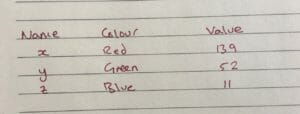 Name Colour Value
x Red 139
y Green 52
z Blue 11